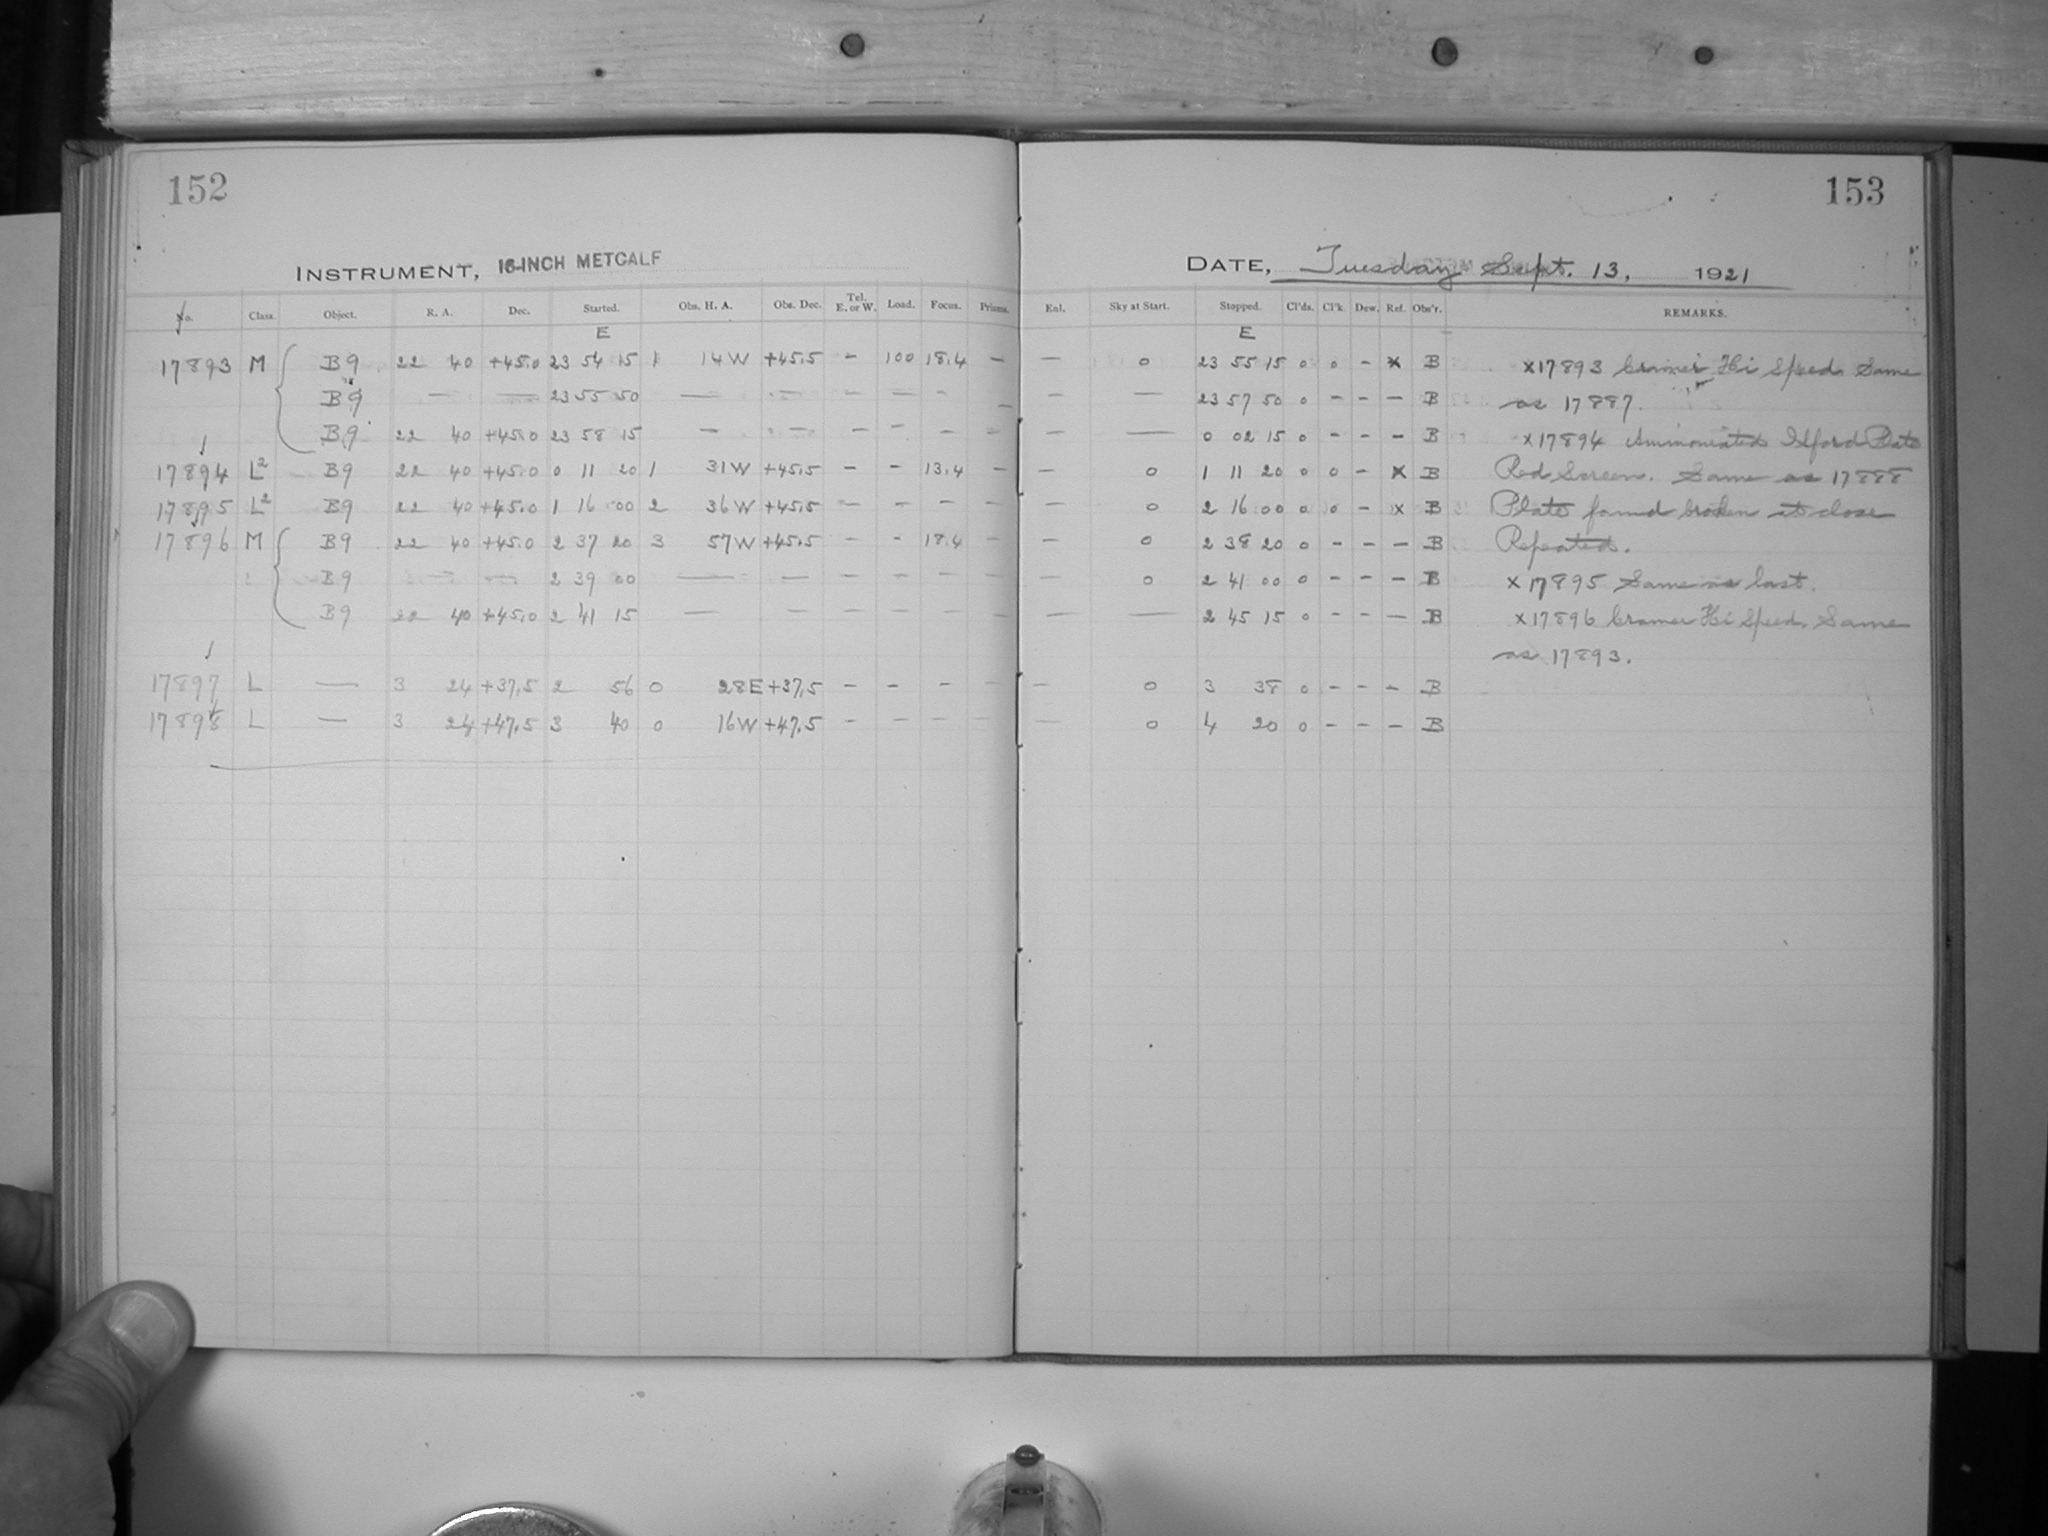 152
INSTRUMENT, 16-INCH METCALF
No. Class. Object. R. A. Dec. Started. Obs. H. A. Obs. Dec. Tel. E. or W. Load. Focus. Prisms.
E
17893 M B9 22 40 +45.0 23 54 15 1 14W +45.5 — 100 18.4 —
B9 — — 23 55 50 — — — — — —
B9 22 40 +45.0 23 58 15 — — — — — —
17894 L2 B9 22 40 +45.0 0 11 20 1 31W +45.5 — — 13.4 —
17895 L2 B9 22 40 +45.0 1 16 00 2 36W +45.5 — — — —
17896 M B9 22 40 +45.0 2 37 20 3 57W +45.5 — — 18.4 —
B9 — — 2 39 00 — — — — — —
B9 22 40 +45.0 2 41 15 — — — — — —
17897 L — 3 24 +37.5 2 56 0 28E +37.5 — — — —
17898 L — 3 24 +47.5 3 40 0 16W +47.5 — — — —
153
DATE, Tuesday Sept. 13, 1921
Enl. Sky at Start. Stopped. Cl'ds. Cl'k. Dew. Ref. Obs'r. REMARKS.
E
— 0 23 55 15 0 0 — x B x17893 Cramer Hi Speed. Same
— — 23 57 50 0 — — — B as 17887.
— — 0 02 15 0 — — — B x17894 Ammoniated Ilford Plate
— 0 1 11 20 0 0 — x B Red Screen. Same as 17888
— 0 2 16 00 0 0 — x B Plate found broken at close
— 0 2 38 20 0 — — — B Repeated.
— 0 2 41 00 0 — — — B x17895 Same as last.
— — 2 45 15 0 — — — B x17896 Cramer Hi Speed. Same
as 17893.
— 0 3 38 0 — — — B
— 0 4 20 0 — — — B